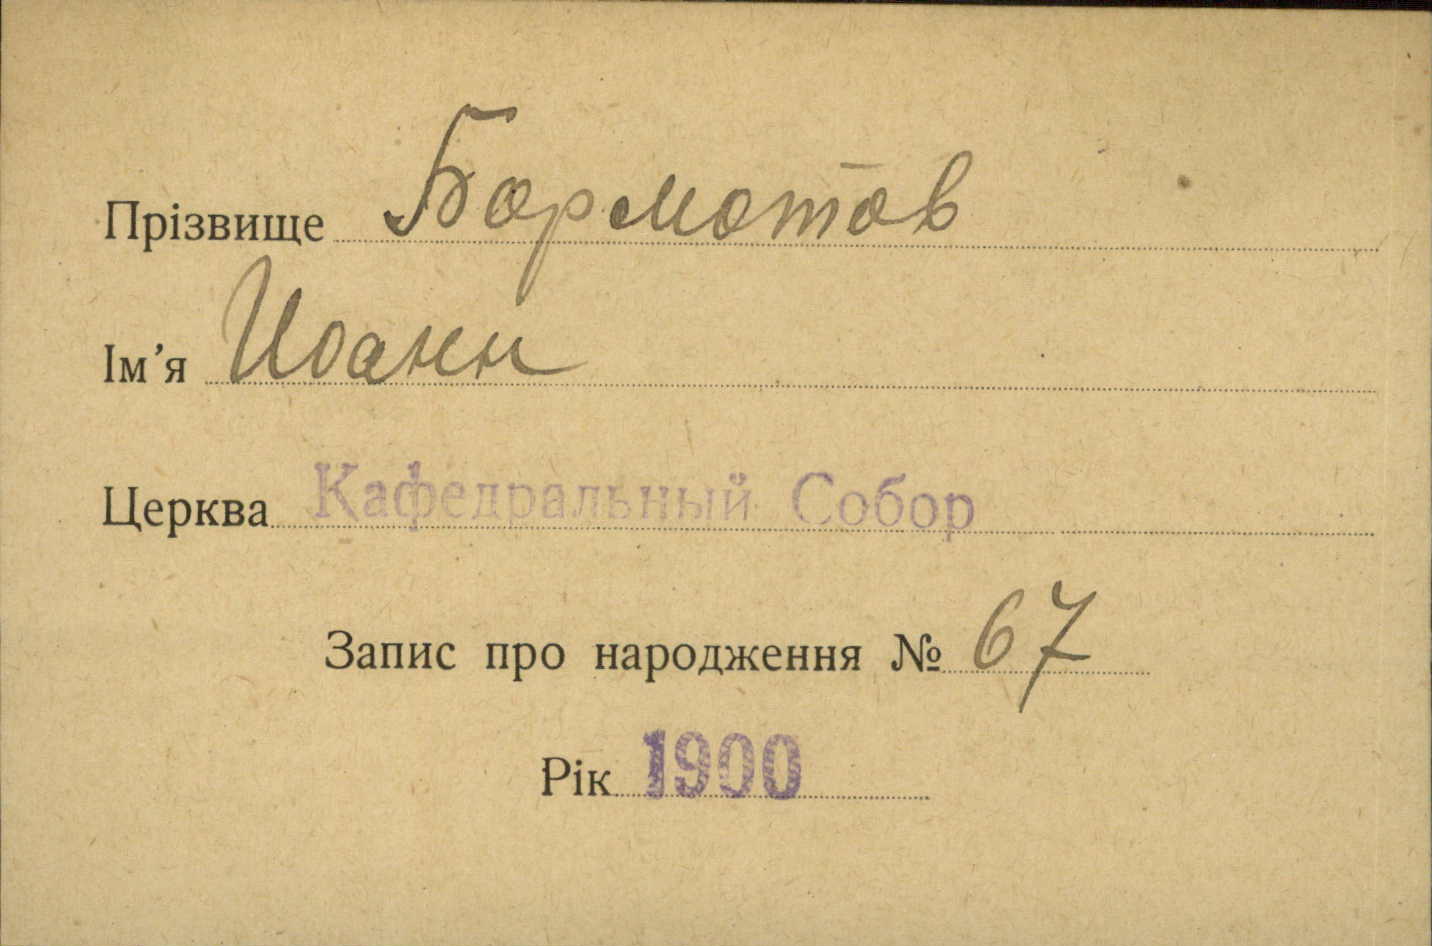 Прізвище Бормотов
Ім’я Иоанн
Церква Кафедральный Собор
Запис про народження № 67
Рік 1900